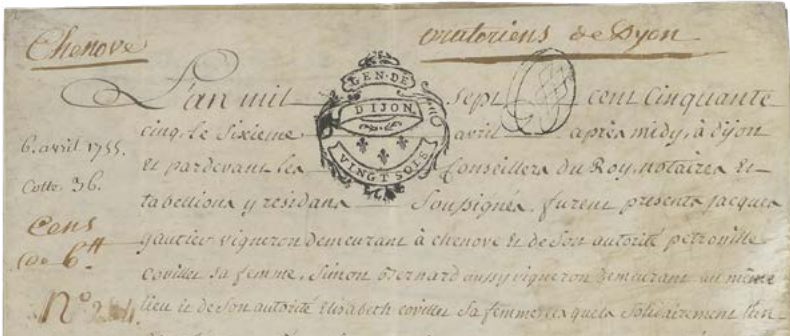 Chenove
oratoriens de Dijon
GEN·DE
DIJON
VINGT SOLS
L'an mil sept cent cinquante
cinq le sixieme avril après midy, à dijon
et pardevant les Conseillers du Roy, notaires et
tabellions y residans Soussignés, furent presents jacques
gautier vigneron demeurant à chenove et de son autorité petronille
coviller sa femme, Simon Bernard aussy vigneron demeurant au même
lieu et de Son autorité Elisabeth coviller Sa femme lesquels Solidairement l'un
6. avril 1755.
Cotte 36.
Cens
de 6
N° 284